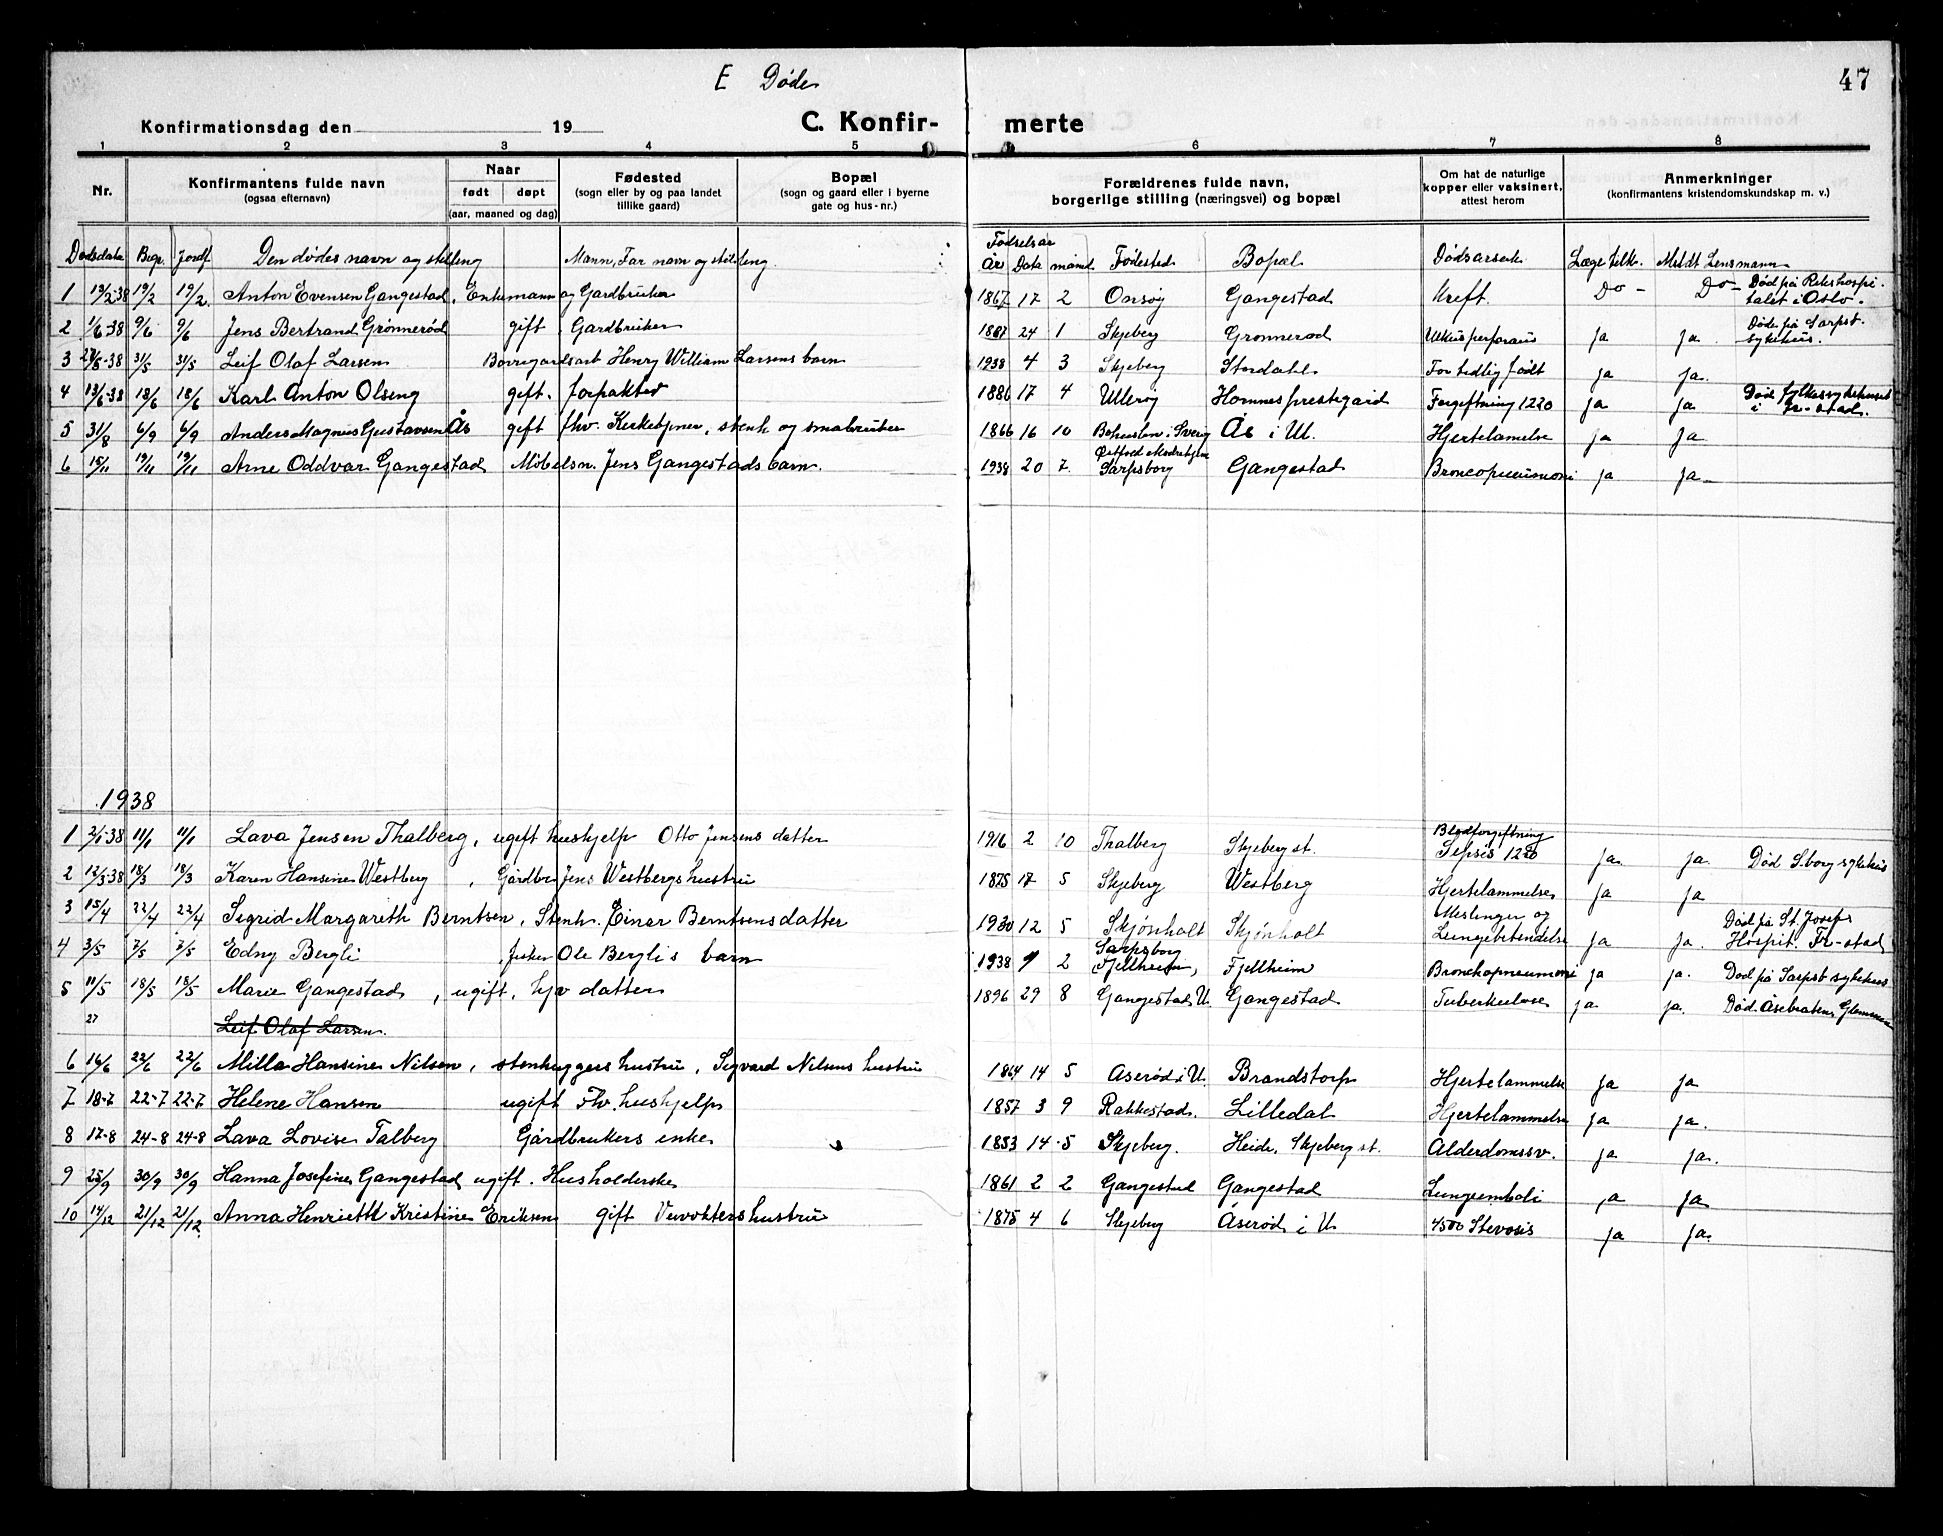 E Døde
47
Konfirmationsdag den 19
C. Konfir-
merte
1 2 3 4 5 6 7 8
Nr.
Konfirmantens fulde navn
(ogsaa efternavn)
Naar
født døpt
(aar, maaned og dag)
Fødested
(sogn eller by og paa landet
tillike gaard)
Bopæl
(sogn og gaard eller i byerne
gate og hus-nr.)
Forældrenes fulde navn,
borgerlige stilling (næringsvei) og bopæl
Om hat de naturlige
kopper eller vaksinert,
attest herom
Anmerkninger
(konfirmantens kristendomskundskap m. v.)
Dødsdata Begr. Jordf. Den dødes navn og stilling Mann, Far navn og stilling. Fødselsår År Data måned Fødested Bopæl Dødsarsak Læge tilk. Meldt Lensmann
1 19/2-38 19/2 19/2 Anton Evensen Gangestad, Enkemann og Gardbruker 1867 17 2 Onsøy Gangestad Kreft. Do - Do - Død på Rikshospitalet i Oslo.
2 1/6-38 9/6 9/6 Jens Bertrand Grønnerød gift Gardbruker 1887 24 1 Skjeberg Grønnerød Ulkusperforans ja ja Døde på Sarpsb. sykehus.
3 27/5-38 31/5 31/5 Leif Olaf Larsen Borregardsarb Henry William Larsens barn 1938 4 3 Skjeberg Stordahl For tidlig født ja ja.
4 13/6-38 18/6 18/6 Karl Anton Olseng gift. forpakter 1886 17 4 Ullerøy Hornnes prestegard Forgiftning 1220 ja ja Død fylkessykehuset i Fr-stad.
5 31/8 6/9 6/9 Anders Magnus Gustavsen Ås gift fhv. Kirketjener, stenh og småbruker 1866 16 10 Bohuslen i Sverig Ås i Ul. Hjertelamelse ja ja
6 15/11 19/11 19/11 Arne Oddvar Gangestad Møbelsn. Jens Gangestads barn. 1938 20 7 Østfold Mødrehjem Sarpsborg Gangestad Broncopneumoni ja ja
1938
1 2/1-38 11/1 11/1 Lava Jensen Thalberg, ugift hushjelp Otto Jensens datter 1916 2 10 Thalberg Skjeberg st. Blodforgiftning Sepsis 1220 ja. ja. Død S.borg sykehus
2 12/3-38 18/3 18/3 Karen Hansine Westberg, Gårdbr Jens Westbergs hustru 1875 17 5 Skjeberg Westberg Hjertelammelse ja ja
3 15/4 22/4 22/4 Sigrid Margareth Berntsen, Stenh. Einar Berntsens datter 1930 12 5 Skjønholt Skjønholt Meslinger og Lungebetendelse ja ja. Død på St. Josefs Hospit. Fr-stad
4 3/5 7/5 7/5 Edny Bergli fisker Ole Berglis barn 1938 9 2 Sarpsborg Fjellheim, Fjellheim Bronchopneumoni ja ja. Død på Sarpsb sykehus
5 11/5 18/5 18/5 Marie Gangestad, ugift, hjv datter 1896 29 8 Gangestad U. Gangestad Tuberkulose ja ja. Død. Åsebråten, Glemmen
27 Leif Olaf Larsen.
6 16/6 22/6 22/6 Milla Hansine Nilsen, stenhuggers hustru, Sigvard Nilsens hustru 1864 14 5 Åserød i U. Brandstorp Hjertelammelse ja ja
7 18-7 22-7 22-7 Helene Hansen ugift Fhv. hushjelp 1857 3 9 Rakkestad. Lilledal Hjertelammelse ja ja.
8 17-8 24-8 24-8 Lava Lovise Talberg Gårdbrukers enke 1853 14 5 Skjeberg. Heide, Skjeberg st. Alderdomssv. ja ja.
9 25/9 30/9 30/9 Hanna Josefine Gangestad ugift. Husholderske 1861 2 2 Gangestad Gangestad Lungeemboli ja ja
10 14/12 21/12 21/12 Anna Henriette Kristine Eriksen gift Vevokters hustru 1875 4 6 Skjeberg Åserød i U 4500 Stevosis ja ja.